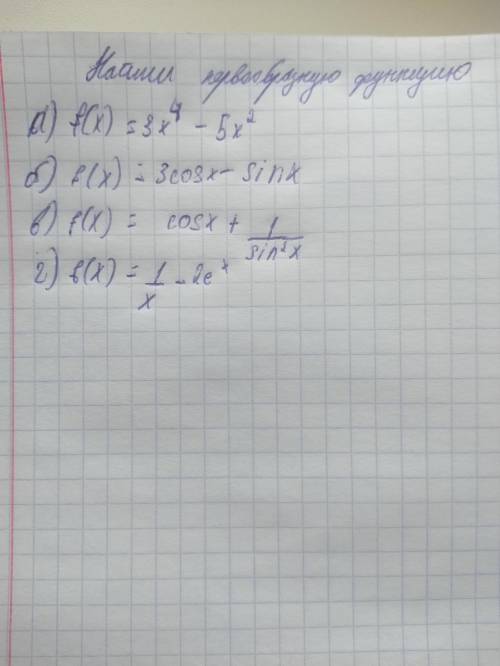 Найти первообразную функцию
а) f(x) = 3x⁴ - 5x²
б) f(x) = 3cosx - sinx
в) f(x) = cosx + 1/sin²x
г) f(x) = 1/x - 2eˣ